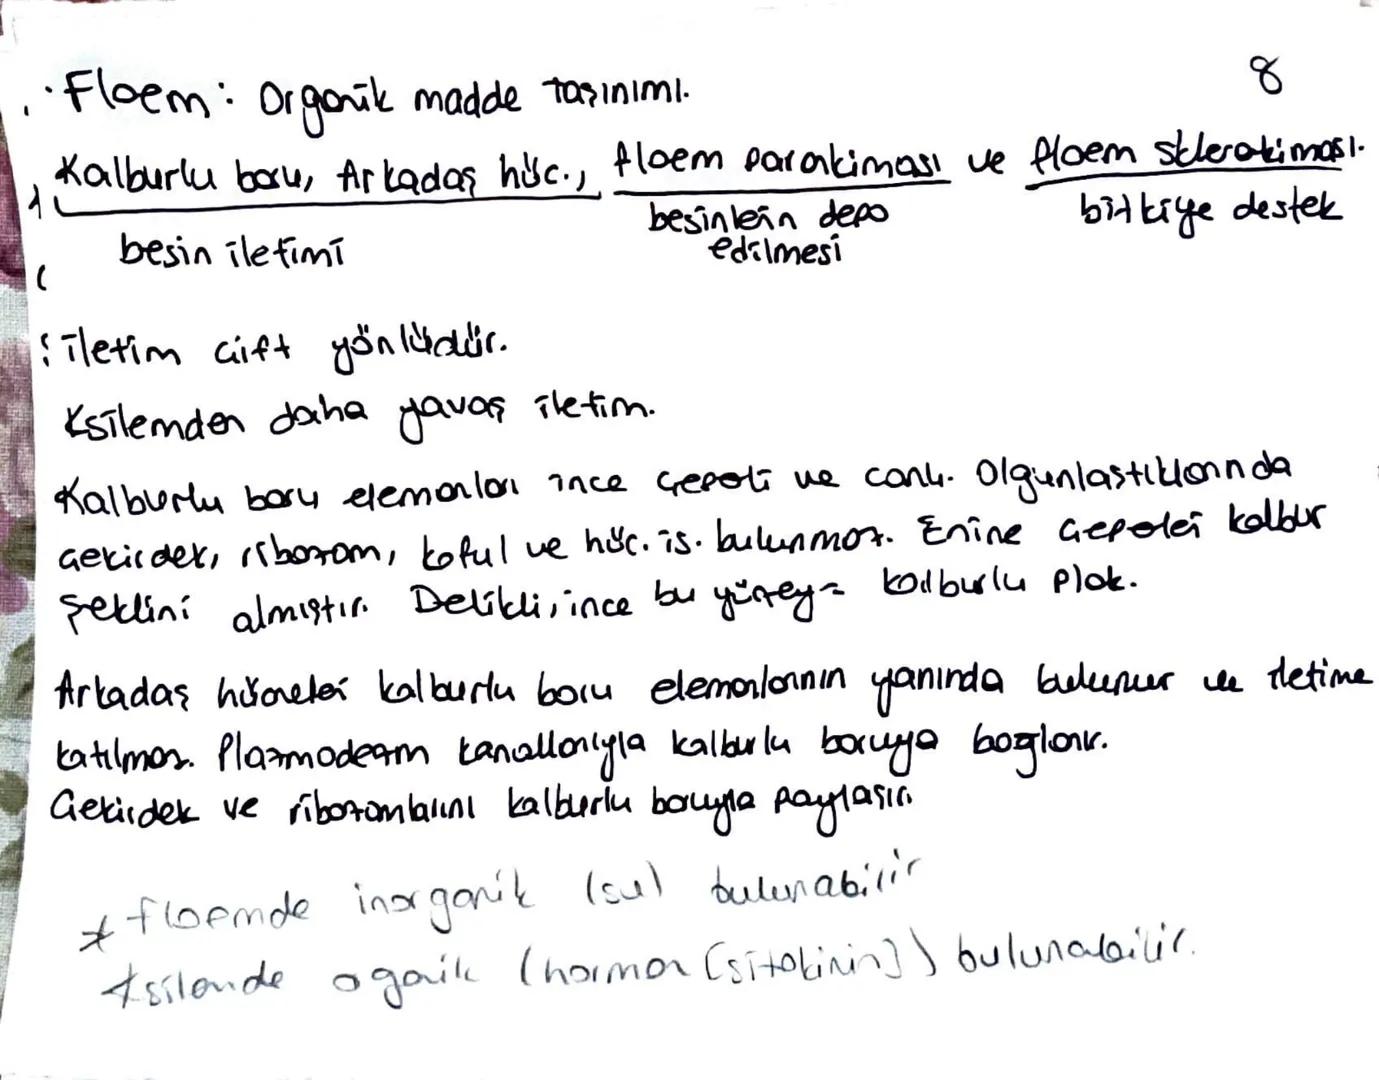 8
· Floem: Organik madde taşınımı.
Kalburlu boru, Arkadaş hüc., floem parankiması ve floem sklerankiması.
besin iletimi besinlerin depo edilmesi bitkiye destek
İletim çift yönlüdür.
Ksilemden daha yavaş iletim.
Kalburlu boru elemanları ince çeperli ve canlı. Olgunlaştıklarında
çekirdek, ribozom, koful ve hüc. is. bulunmaz. Enine çeperleri kalbur
şeklini almıştır. Delikli, ince bu yüzeye kalburlu plak.
Arkadaş hücreleri kalburlu boru elemanlarının yanında bulunur ve iletime
katılmaz. Plazmodezm kanallarıyla kalburlu boruya bağlanır.
Çekirdek ve ribozomlarını kalburlu boruyla paylaşır.
* floemde inorganik (su) bulunabilir
Ksilemde oganik (hormon [sitokinin]) bulunabilir.